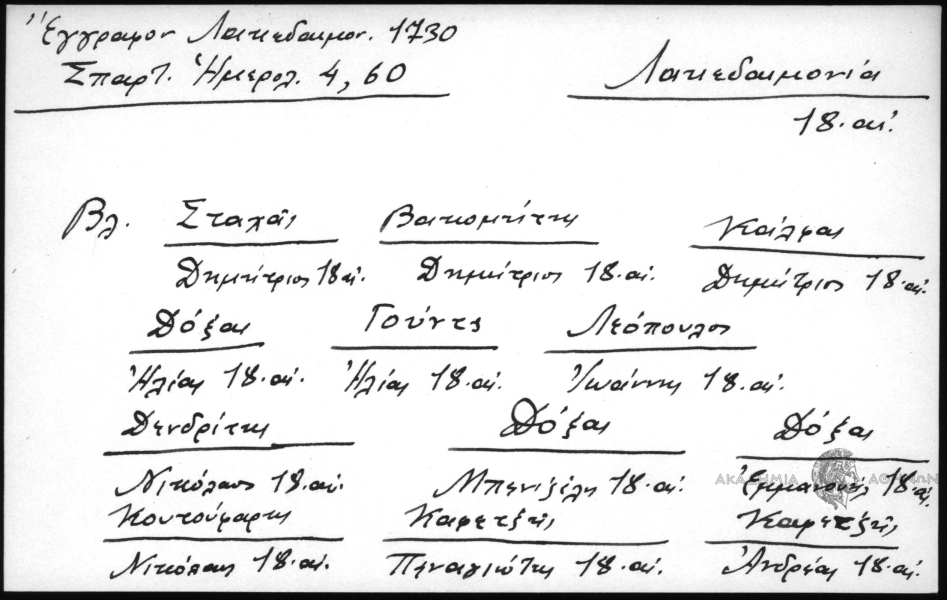 Ἔγγραφον Λακεδαιμον. 1730
Σπαρτ. Ἡμερολ. 4, 60
Λακεδαιμονία
18. αἰ.
Βλ. Σταχᾶς Βακομίτης Κάλφας
Δημήτριος 18 αἰ. Δημήτριος 18. αἰ. Δημήτριος 18. αἰ.
Δόξας Γούντς Λεόπουλος
Ἠλίας 18. αἰ. Ἠλίας 18. αἰ. Ἰωάννης 18. αἰ.
Δενδρίτης Δόξας Δόξας
Νικόλαος 18. αἰ. Μπενιζέλης 18. αἰ. Ἐμμανουήλ 18. αἰ.
ΑΚΑΔΗΜΙΑ ΑΘΗΝΩΝ
Κουτούφαρης Καφετζῆς Καφετζῆς
Νικόλαος 18. αἰ. Παναγιώτης 18. αἰ. Ἀνδρέας 18. αἰ.